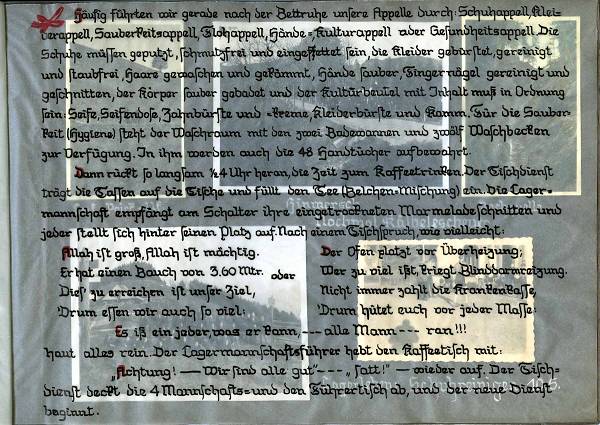 Häufig führten wir gerade nach der Bettruhe unsere Appelle durch: Schuhappell, Klei-
derappell, Sauberkeitsappell, Flohappell, Hände=, Kulturappell oder Gesundheitsappell. Die
Schuhe müssen geputzt, schmutzfrei und eingefettet sein, die Kleider gebürstet, gereinigt
und staubfrei, Haare gewaschen und gekämmt, Hände sauber, Fingernägel gereinigt und
geschnitten, der Körper sauber gebadet und der Kulturbeutel mit Inhalt muß in Ordnung
sein: Seife, Seifendose, Zahnbürste und =kreme, Kleiderbürste und Kamm. Für die Sauber-
keit (Hygiene) steht der Waschraum mit den zwei Badewannen und zwölf Waschbecken
zur Verfügung. In ihm werden auch die 48 Handtücher aufbewahrt.
Dann rückt so langsam ½4 Uhr heran, die Zeit zum Kaffeetrinken. Der Tischdienst
trägt die Tassen auf die Tische und füllt den Tee (Belchen=Mischung) ein. Die Lager-
mannschaft empfängt am Schalter ihre eingetrockneten Marmeladeschnitten und
jeder stellt sich hinter seinen Platz auf. Nach einem Tischspruch, wie vielleicht:
Allah ist groß, Allah ist mächtig.
Er hat einen Bauch von 3,60 Mtr.
Dies' zu erreichen ist unser Ziel,
'Drum essen wir auch so viel:
oder
Der Ofen platzt vor Überheizung;
Wer zu viel ißt, kriegt Blinddarmreizung.
Nicht immer zahlt die Krankenkasse,
'Drum hütet euch vor jeder Masse:
Es iß ein jeder, was er kann, --- alle Mann --- ran!!!
haut alles rein. Der Lagermannschaftsführer hebt den Kaffeetisch mit:
„Achtung! — Wir sind alle gut" --- „satt!" — wieder auf. Der Tisch=
dienst deckt die 4 Mannschafts= und den Führertisch ab, und der neue Dienst
beginnt.